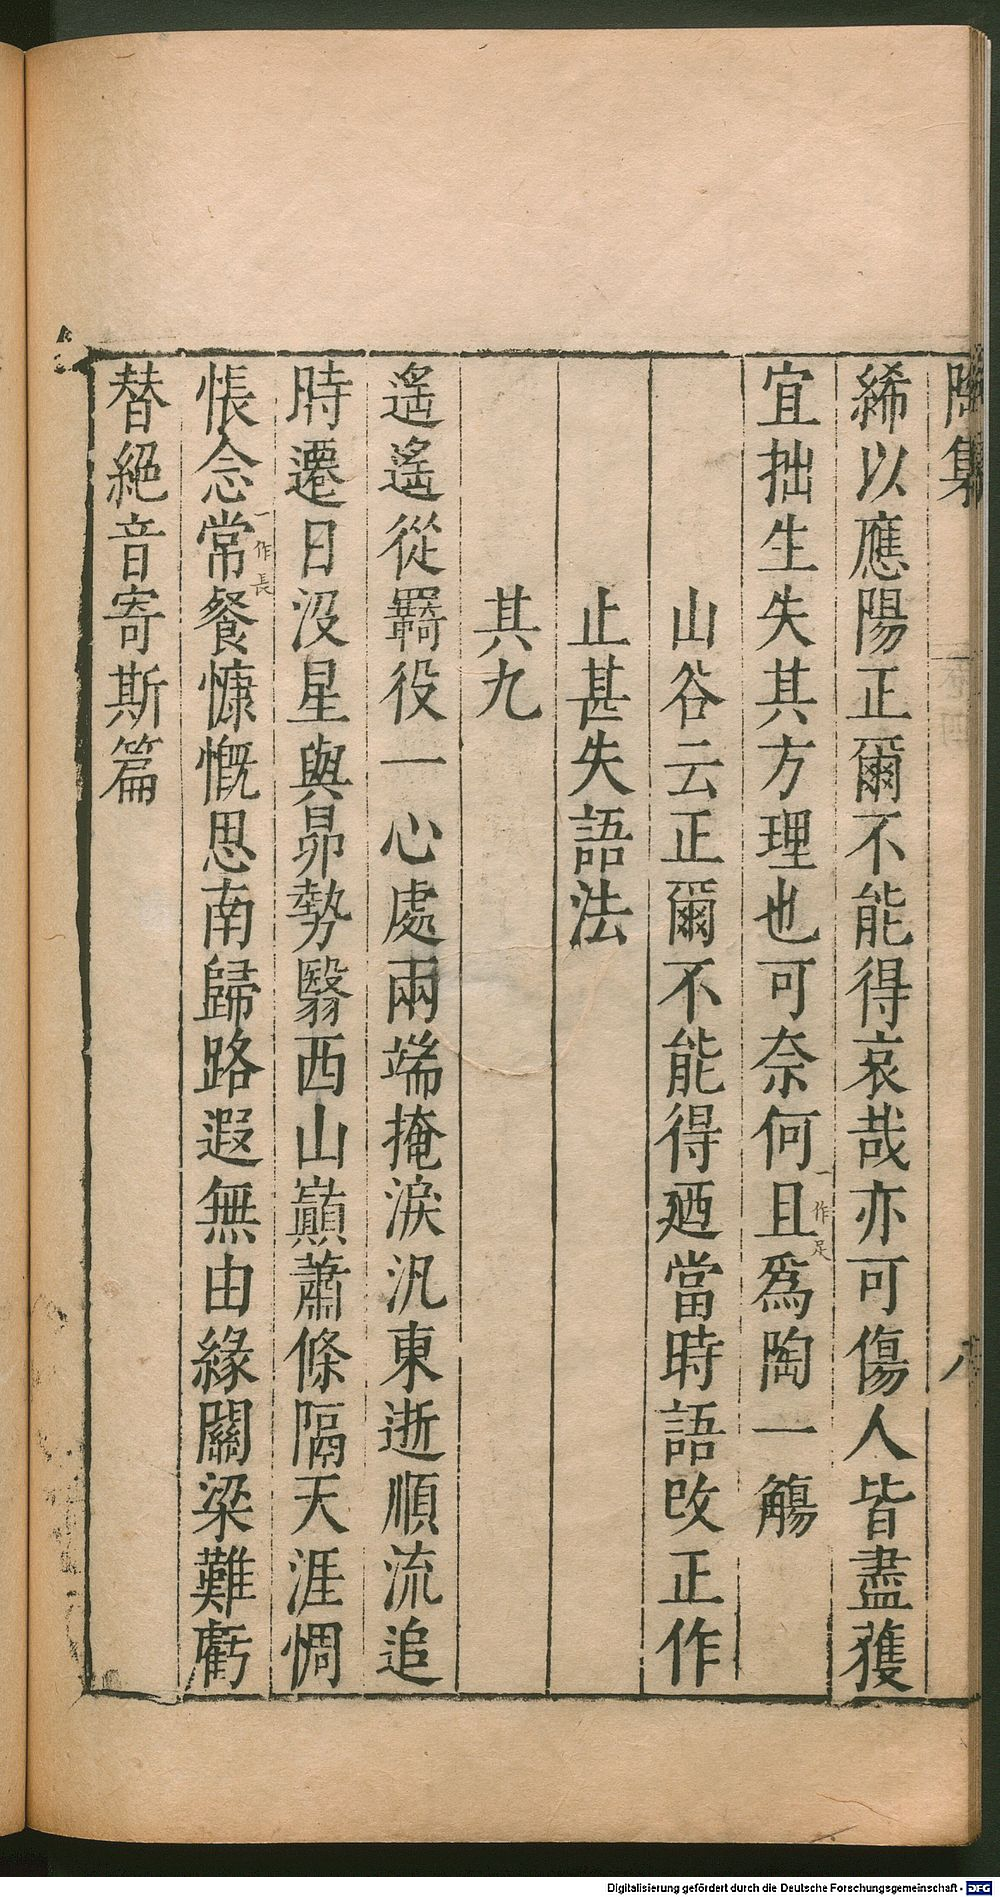 陶集 八
絺以應陽正爾不能得哀哉亦可傷人皆盡獲
宜拙生失其方理也可奈何且一作足爲陶一觴
山谷云正爾不能得廼當時語改正作
止甚失語法
其九
遥遥從羇役一心處兩端掩淚汎東逝順流追
時遷日没星與昴勢翳西山巔蕭條隔天涯惆
悵念常一作長餐慷慨思南歸路遐無由緣關梁難虧
替絕音寄斯篇
Digitalisierung gefördert durch die Deutsche Forschungsgemeinschaft - DFG